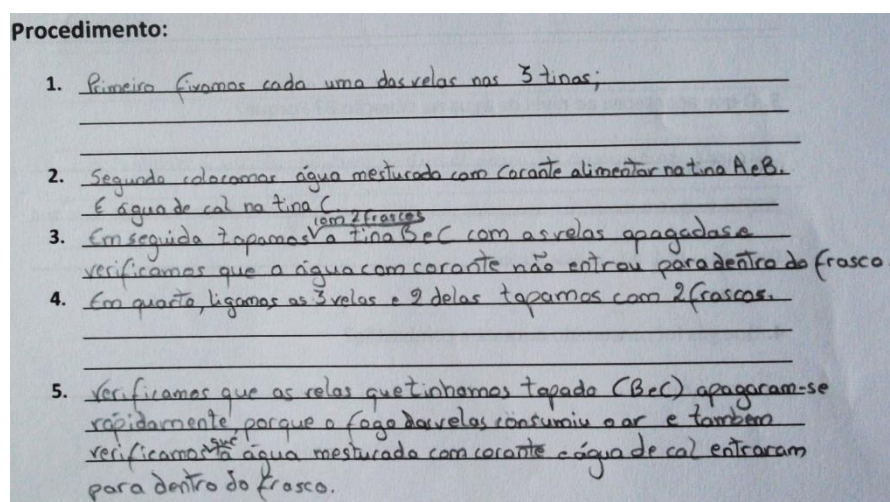 Procedimento:
1. Primeiro fixamos cada uma das velas nas 3 tinas;
2. Segundo colocamos água mesturada com corante alimentar na tina A e B.
E água de cal na tina C.
com 2 frascos
3. Em seguida tapamos a tina B e C com as velas apagadas e
verificamos que a água com corante não entrou para dentro do frasco.
4. Em quarto, ligamos as 3 velas e 2 delas tapamos com 2 frascos.
5. Verificamos que as velas que tinhamos tapado (B e C) apagaram-se
rápidamente, porque o fogo das velas consumiu o ar e também
verificamos que a água mesturada com corante e água de cal entraram
para dentro do frasco.